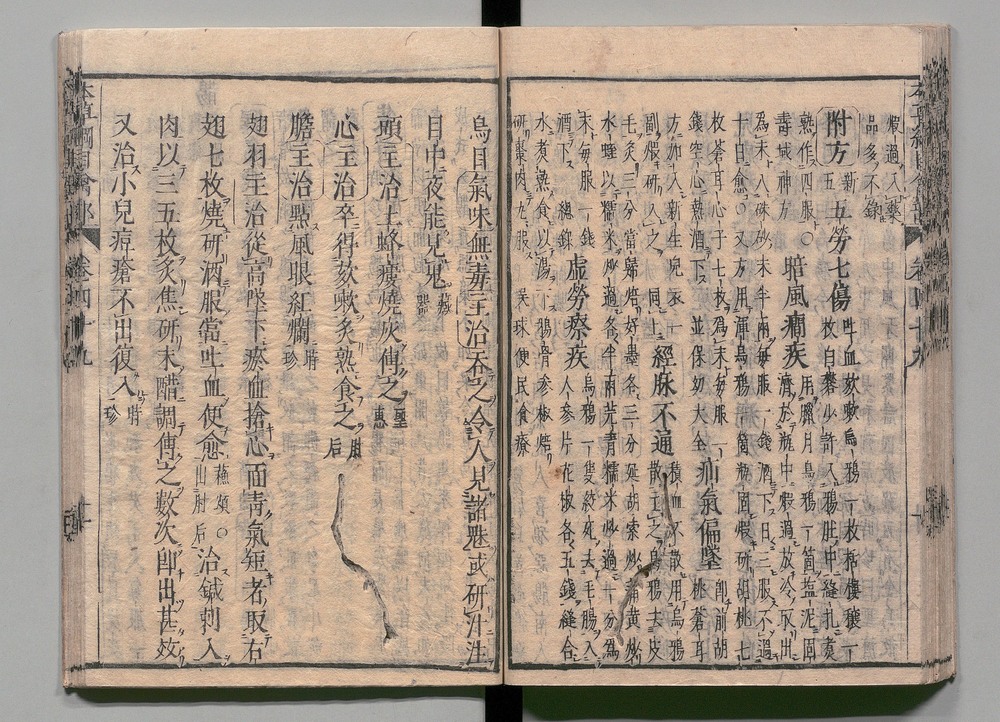 煆過入藥
品多不錄
附方新五五勞七傷吐血欬嗽烏鴉一枚栝樓穰一
枚白礬少許入鴉肚中縫扎煑
熟作四服○
壽域神方暗風癇疾用臘月烏鴉一箇鹽泥固
濟於瓶中煆過放冷取出
為末入硃砂末半兩每服一錢酒下日三服不過
十日愈○又方用渾烏鴉瓶固煆研胡桃七
枚蒼耳心子七枚為末每服一
錢空心熱酒下並保幼大全疝氣偏墜即前胡
桃蒼耳
方加入新生兒衣一
副煆研入之同上經脉不通積血不散用烏鴉
散主之烏鴉去皮
毛炙三分當歸焙好墨各三分延胡索炒蒲黄炒
水蛭以糯米炒過各半兩芫青糯米炒過一分為
末每服一錢
酒下總錄虛勞瘵疾烏鴉一隻絞死去毛腸入
人參片花椒各五錢縫合
水煮熟食以湯下鴉骨參椒焙
研棗肉丸服吳球便民食療
烏目氣味無毒主治吞之令人見諸魅或研汁注
目中夜能見鬼藏器
頭主治土蜂瘻燒灰傅之聖惠
心主治卒得欬嗽炙熟食之肘后
膽主治點風眼紅爛時珍
翅羽主治從高墜下瘀血搶心面青氣短者取右
翅七枚燒研酒服當吐血便愈蘇頌○出肘后治鍼刺入
肉以三五枚炙焦研末醋調傅之數次即出甚效
又治小兒痘瘡不出復入時珍